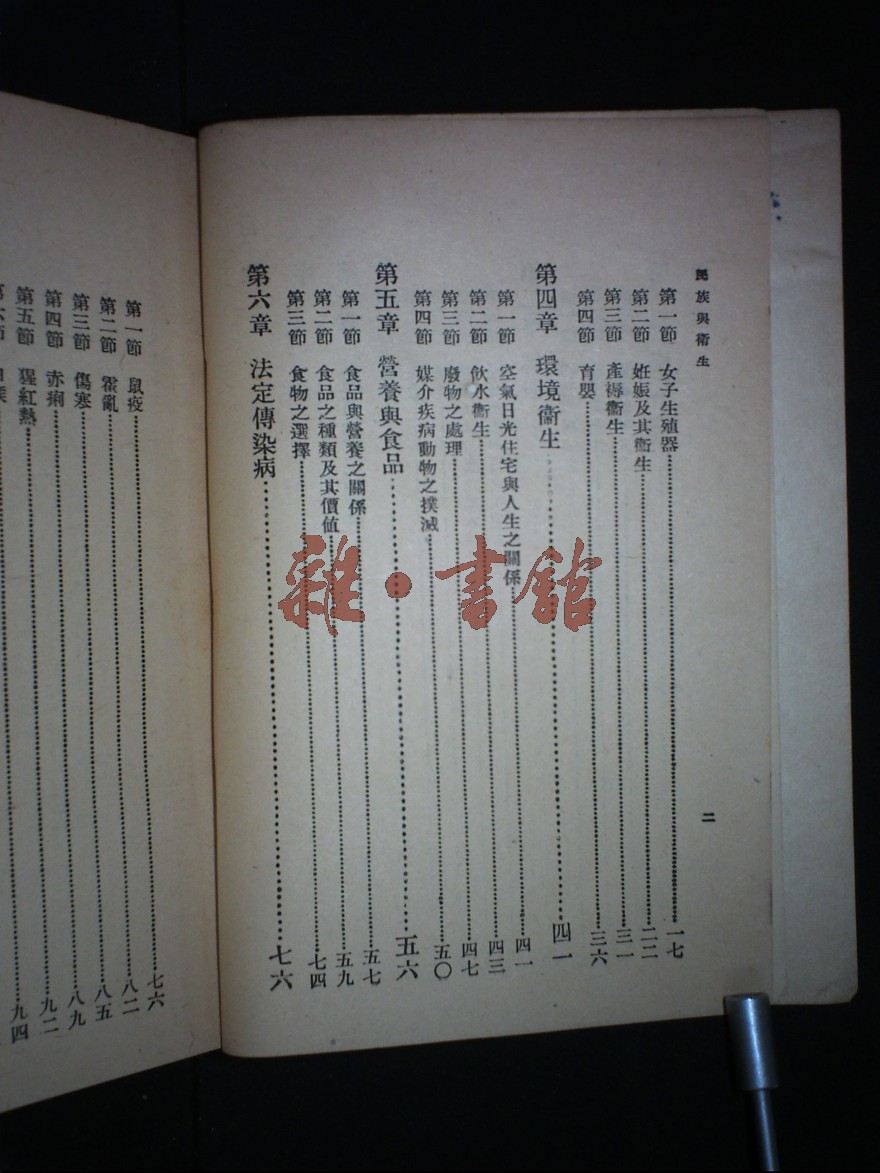 民族與衛生
二
第一節 女子生殖器……一七
第二節 妊娠及其衞生……二二
第三節 產褥衞生……三一
第四節 育嬰……三六
第四章 環境衞生……四一
第一節 空氣日光住宅與人生之關係……四一
第二節 飲水衞生……四三
第三節 廢物之處理……四七
第四節 媒介疾病動物之撲滅……五〇
第五章 營養與食品……五六
第一節 食品與營養之關係……五七
第二節 食品之種類及其價値……五九
第三節 食物之選擇……七四
第六章 法定傳染病……七六
第一節 鼠疫……七六
第二節 霍亂……八二
第三節 傷寒……八五
第四節 赤痢……八九
第五節 猩紅熱……九二
九四
雜·書館